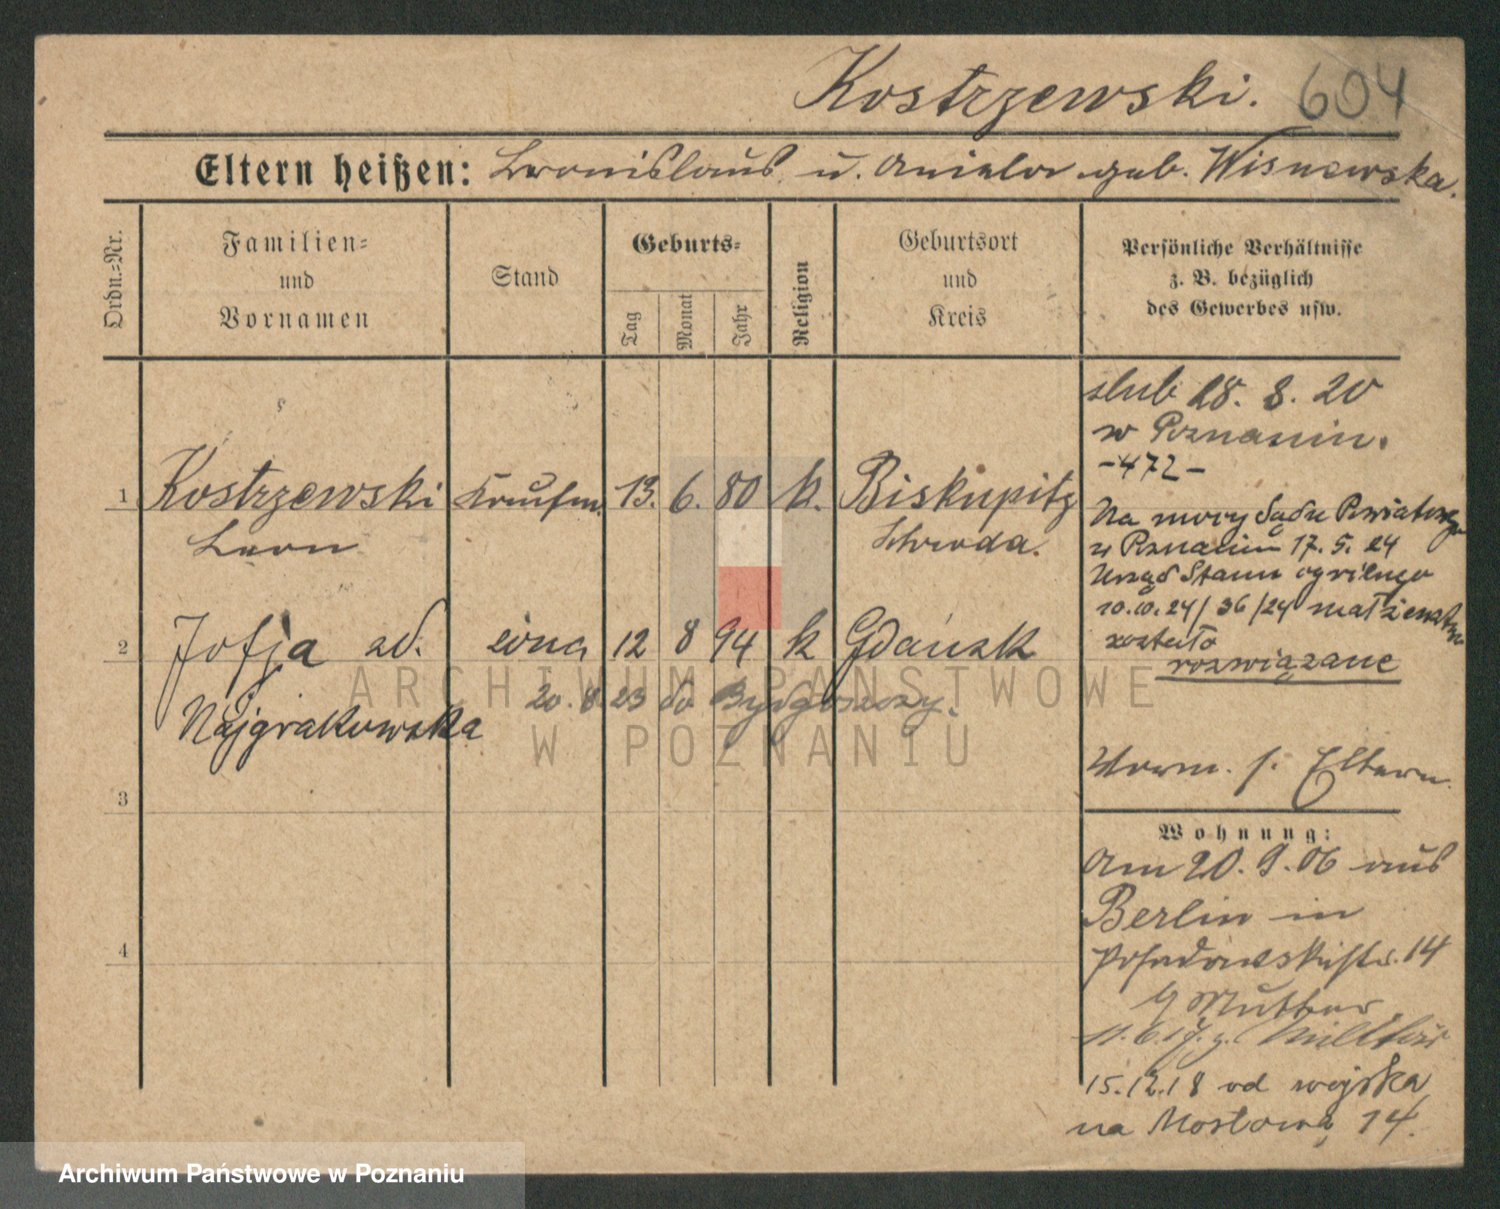 Kostrzewski. 604
Eltern heißen: Bronislaus u. Aniela geb. Wisnewska.
Ordn.=Nr.
Familien=
und
Vornamen
Stand
Geburts=
Tag
Monat
Jahr
Religion
Geburtsort
und
Kreis
Persönliche Verhältnisse
z. B. bezüglich
des Gewerbes usw.
1 Kostrzewski Kaufm. 13. 6. 80 k. Biskupitz
Leon Schroda.
2 Zofja zd. żona 12 8 94 k Gdańsk
20. 8 23 do Bydgoszczy.
Najgrakowska
3
4
ślub 28. 8. 20
w Poznaniu.
-472-
Na mocy Sądu Powiatowego
w Poznaniu 17. 5. 24
Urząd Stanu
10.10.24/36/24 małżeństwo
zostało
rozwiązane
Vorm. s. Eltern.
Wohnung:
Am 20. 9. 06 aus
Berlin in
Posadowskistr. 14
b/ Mutter
11. 6. 17. z. Militär
15.12.18 od wojska
na Mostową 14.
ARCHIWUM PAŃSTWOWE
W POZNANIU
Archiwum Państwowe w Poznaniu